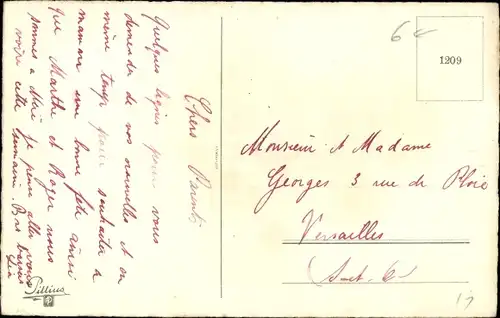 Chers Parents
Quelques lignes pour vous
demander de vos nouvelles et en
même temps pour souhaiter a
maman une bonne fête ainsi
que Marthe et Roger nous
sommes a je pense aller vous
voir cette semaine. Bons baisers
Pillius
6 €
1209
Monsieur et Madame
Georges 3 rue de
Versailles
S.-et-O.
17